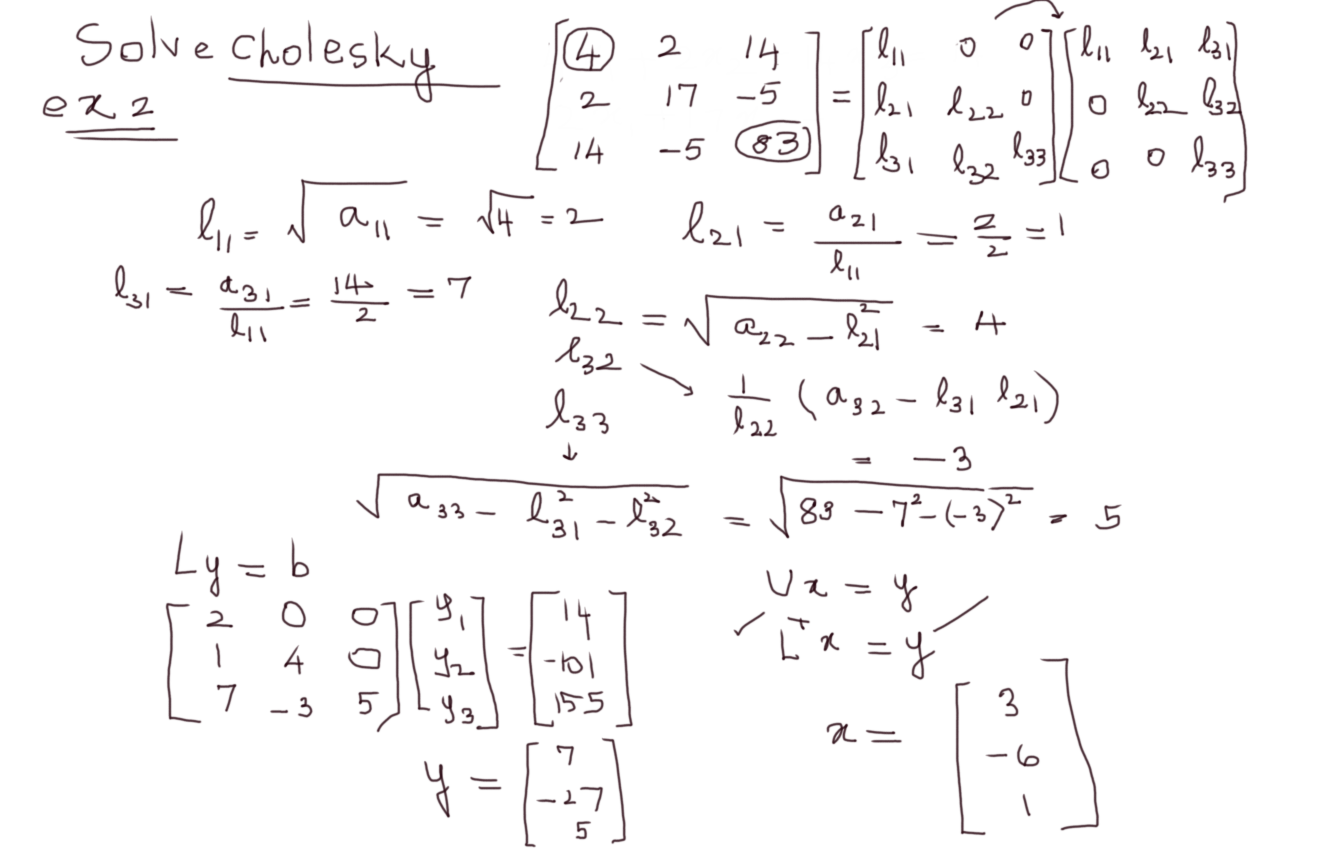 Solve Cholesky
ex 2
[4 2 14; 2 17 -5; 14 -5 83] = [l₁₁ 0 0; l₂₁ l₂₂ 0; l₃₁ l₃₂ l₃₃] [l₁₁ l₂₁ l₃₁; 0 l₂₂ l₃₂; 0 0 l₃₃]
l₁₁ = √a₁₁ = √4 = 2
l₂₁ = a₂₁/l₁₁ = 2/2 = 1
l₃₁ = a₃₁/l₁₁ = 14/2 = 7
l₂₂ = √(a₂₂ – l₂₁²) = 4
l₃₂ ↘ 1/l₂₂ (a₃₂ – l₃₁ l₂₁)
= –3
l₃₃
↓
√(a₃₃ – l₃₁² – l₃₂²) = √(83 – 7² – (–3)²) = 5
Ly = b
[2 0 0; 1 4 0; 7 -3 5] [y₁; y₂; y₃] = [14; -101; 155]
y = [7; -27; 5]
Ux = y
✓ Lᵀx = y
x = [3; -6; 1]